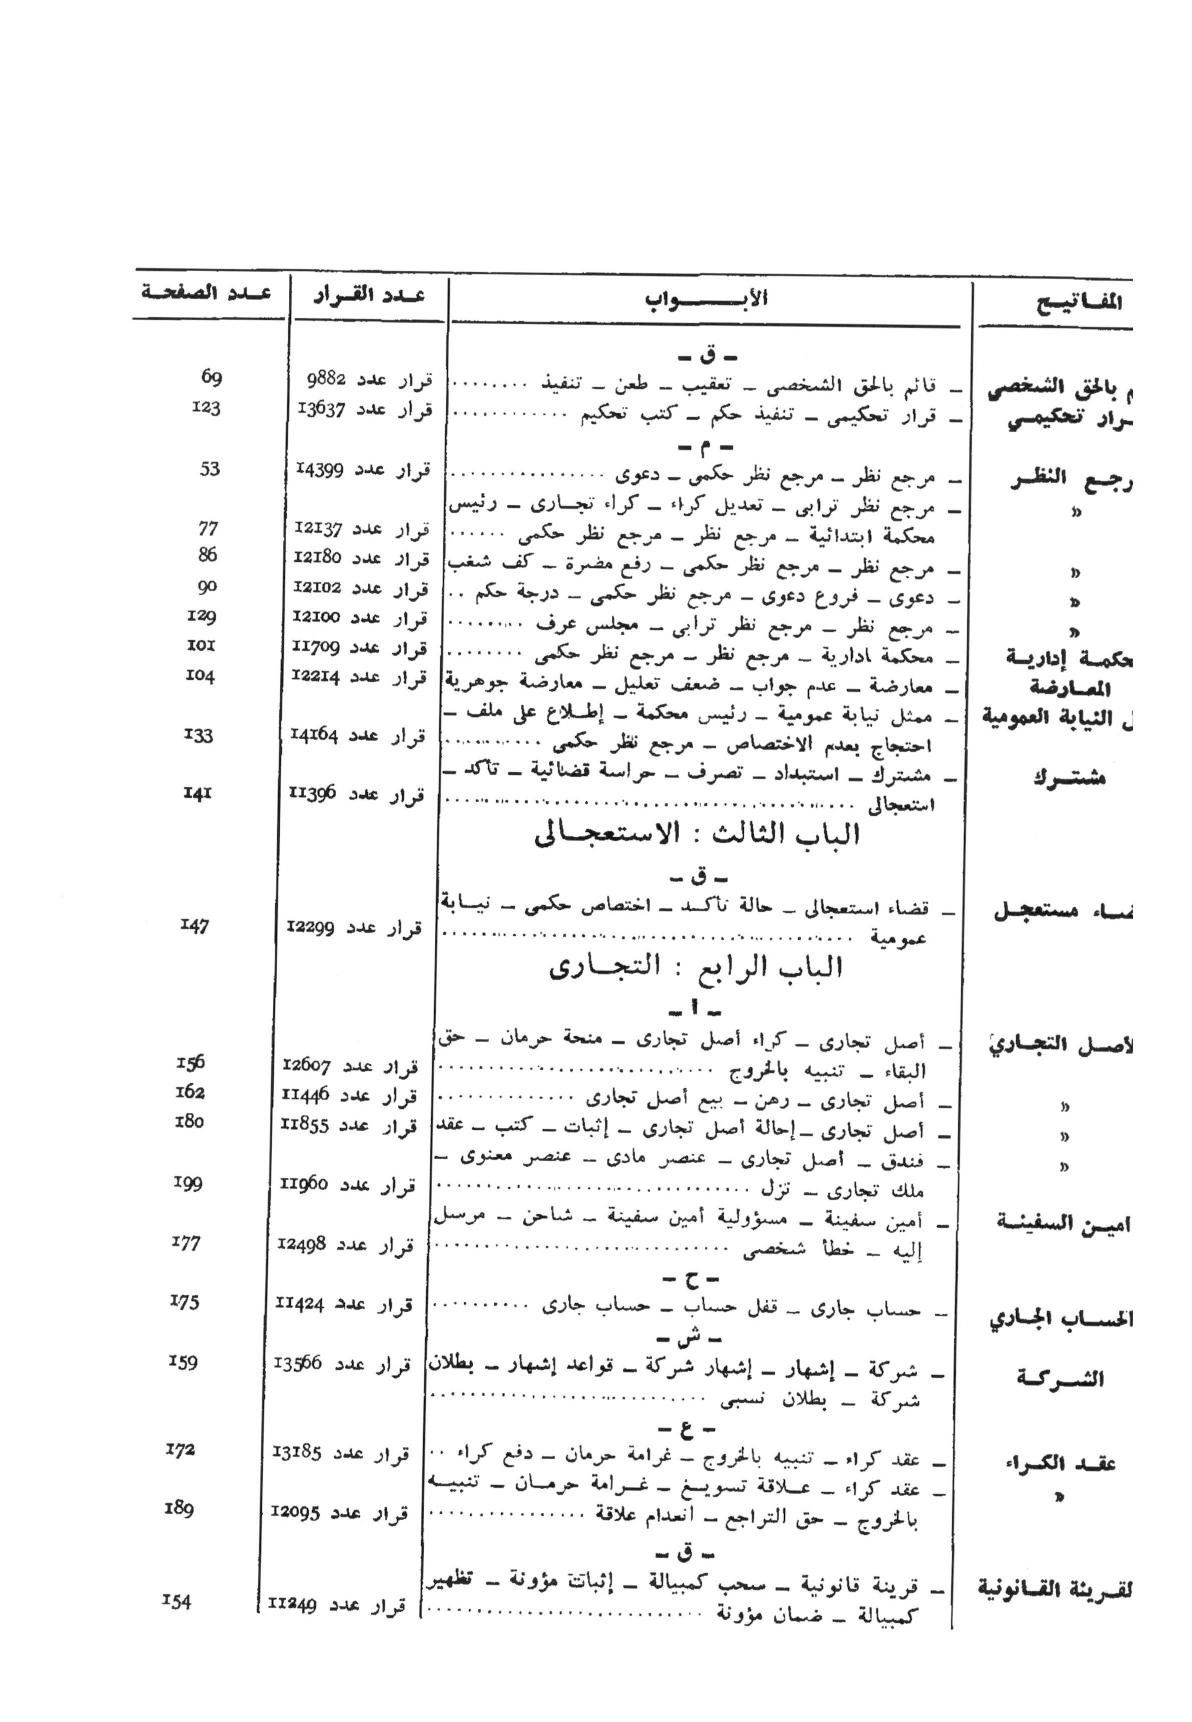 المفاتيح الأبواب عدد القرار عدد الصفحة
ـ ق ـ
م بالحق الشخصي ـ قائم بالحق الشخصى ـ تعقيب ـ طعن ـ تنفيذ ........ قرار عدد 9882 69
رار تحكيمي ـ قرار تحكيمى ـ تنفيذ حكم ـ كتب تحكيم ............ قرار عدد 13637 123
ـ م ـ
رجع النظر ـ مرجع نظر ـ مرجع نظر حكمى ـ دعوى ................ قرار عدد 14399 53
» ـ مرجع نظر ترابى ـ تعديل كراء ـ كراء تجارى ـ رئيس
محكمة ابتدائية ـ مرجع نظر ـ مرجع نظر حكمى ...... قرار عدد 12137 77
» ـ مرجع نظر ـ مرجع نظر حكمى ـ رفع مضرة ـ كف شغب قرار عدد 12180 86
» ـ دعوى ـ فروع دعوى ـ مرجع نظر حكمى ـ درجة حكم .. قرار عدد 12102 90
» ـ مرجع نظر ـ مرجع نظر ترابى ـ مجلس عرف ......... قرار عدد 12100 129
حكمة إدارية ـ محكمة ادارية ـ مرجع نظر ـ مرجع نظر حكمى ........ قرار عدد 11709 101
المعارضة ـ معارضة ـ عدم جواب ـ ضعف تعليل ـ معارضة جوهرية قرار عدد 12214 104
ل النيابة العمومية ـ ممثل نيابة عمومية ـ رئيس محكمة ـ إطلاع على ملف ـ
احتجاج بعدم الاختصاص ـ مرجع نظر حكمى ............ قرار عدد 14164 133
مشترك ـ مشترك ـ استبداد ـ تصرف ـ حراسة قضائية ـ تأكد ـ
استعجالى .................................................. قرار عدد 11396 141
الباب الثالث : الاستعجالى
ـ ق ـ
ضاء مستعجل ـ قضاء استعجالى ـ حالة تأكد ـ اختصاص حكمى ـ نيابة
عمومية .................................................. قرار عدد 12299 147
الباب الرابع : التجارى
ـ ا ـ
لأصل التجاري ـ أصل تجارى ـ كراء أصل تجارى ـ منحة حرمان ـ حق
البقاء ـ تنبيه بالخروج .................................. قرار عدد 12607 156
» ـ أصل تجارى ـ رهن ـ بيع أصل تجارى .............. قرار عدد 11446 162
» ـ أصل تجارى ـ إحالة أصل تجارى ـ إثبات ـ كتب ـ عقد قرار عدد 11855 180
» ـ فندق ـ أصل تجارى ـ عنصر مادى ـ عنصر معنوى ـ
ملك تجارى ـ نزل .................................. قرار عدد 11960 199
امين السفينة ـ أمين سفينة ـ مسؤولية أمين سفينة ـ شاحن ـ مرسل
إليه ـ خطأ شخصى .................................. قرار عدد 12498 177
ـ ح ـ
الحساب الجاري ـ حساب جارى ـ قفل حساب ـ حساب جارى .......... قرار عدد 11424 175
ـ ش ـ
الشركة ـ شركة ـ إشهار ـ إشهار شركة ـ قواعد إشهار ـ بطلان قرار عدد 13566 159
شركة ـ بطلان نسبى ..................................
ـ ع ـ
عقد الكراء ـ عقد كراء ـ تنبيه بالخروج ـ غرامة حرمان ـ دفع كراء .. قرار عدد 13185 172
» ـ عقد كراء ـ علاقة تسويغ ـ غرامة حرمان ـ تنبيه
بالخروج ـ حق التراجع ـ انعدام علاقة ................ قرار عدد 12095 189
ـ ق ـ
لقرينة القانونية ـ قرينة قانونية ـ سحب كمبيالة ـ إثبات مؤونة ـ تظهير
كمبيالة ـ ضمان مؤونة .............................. قرار عدد 11249 154